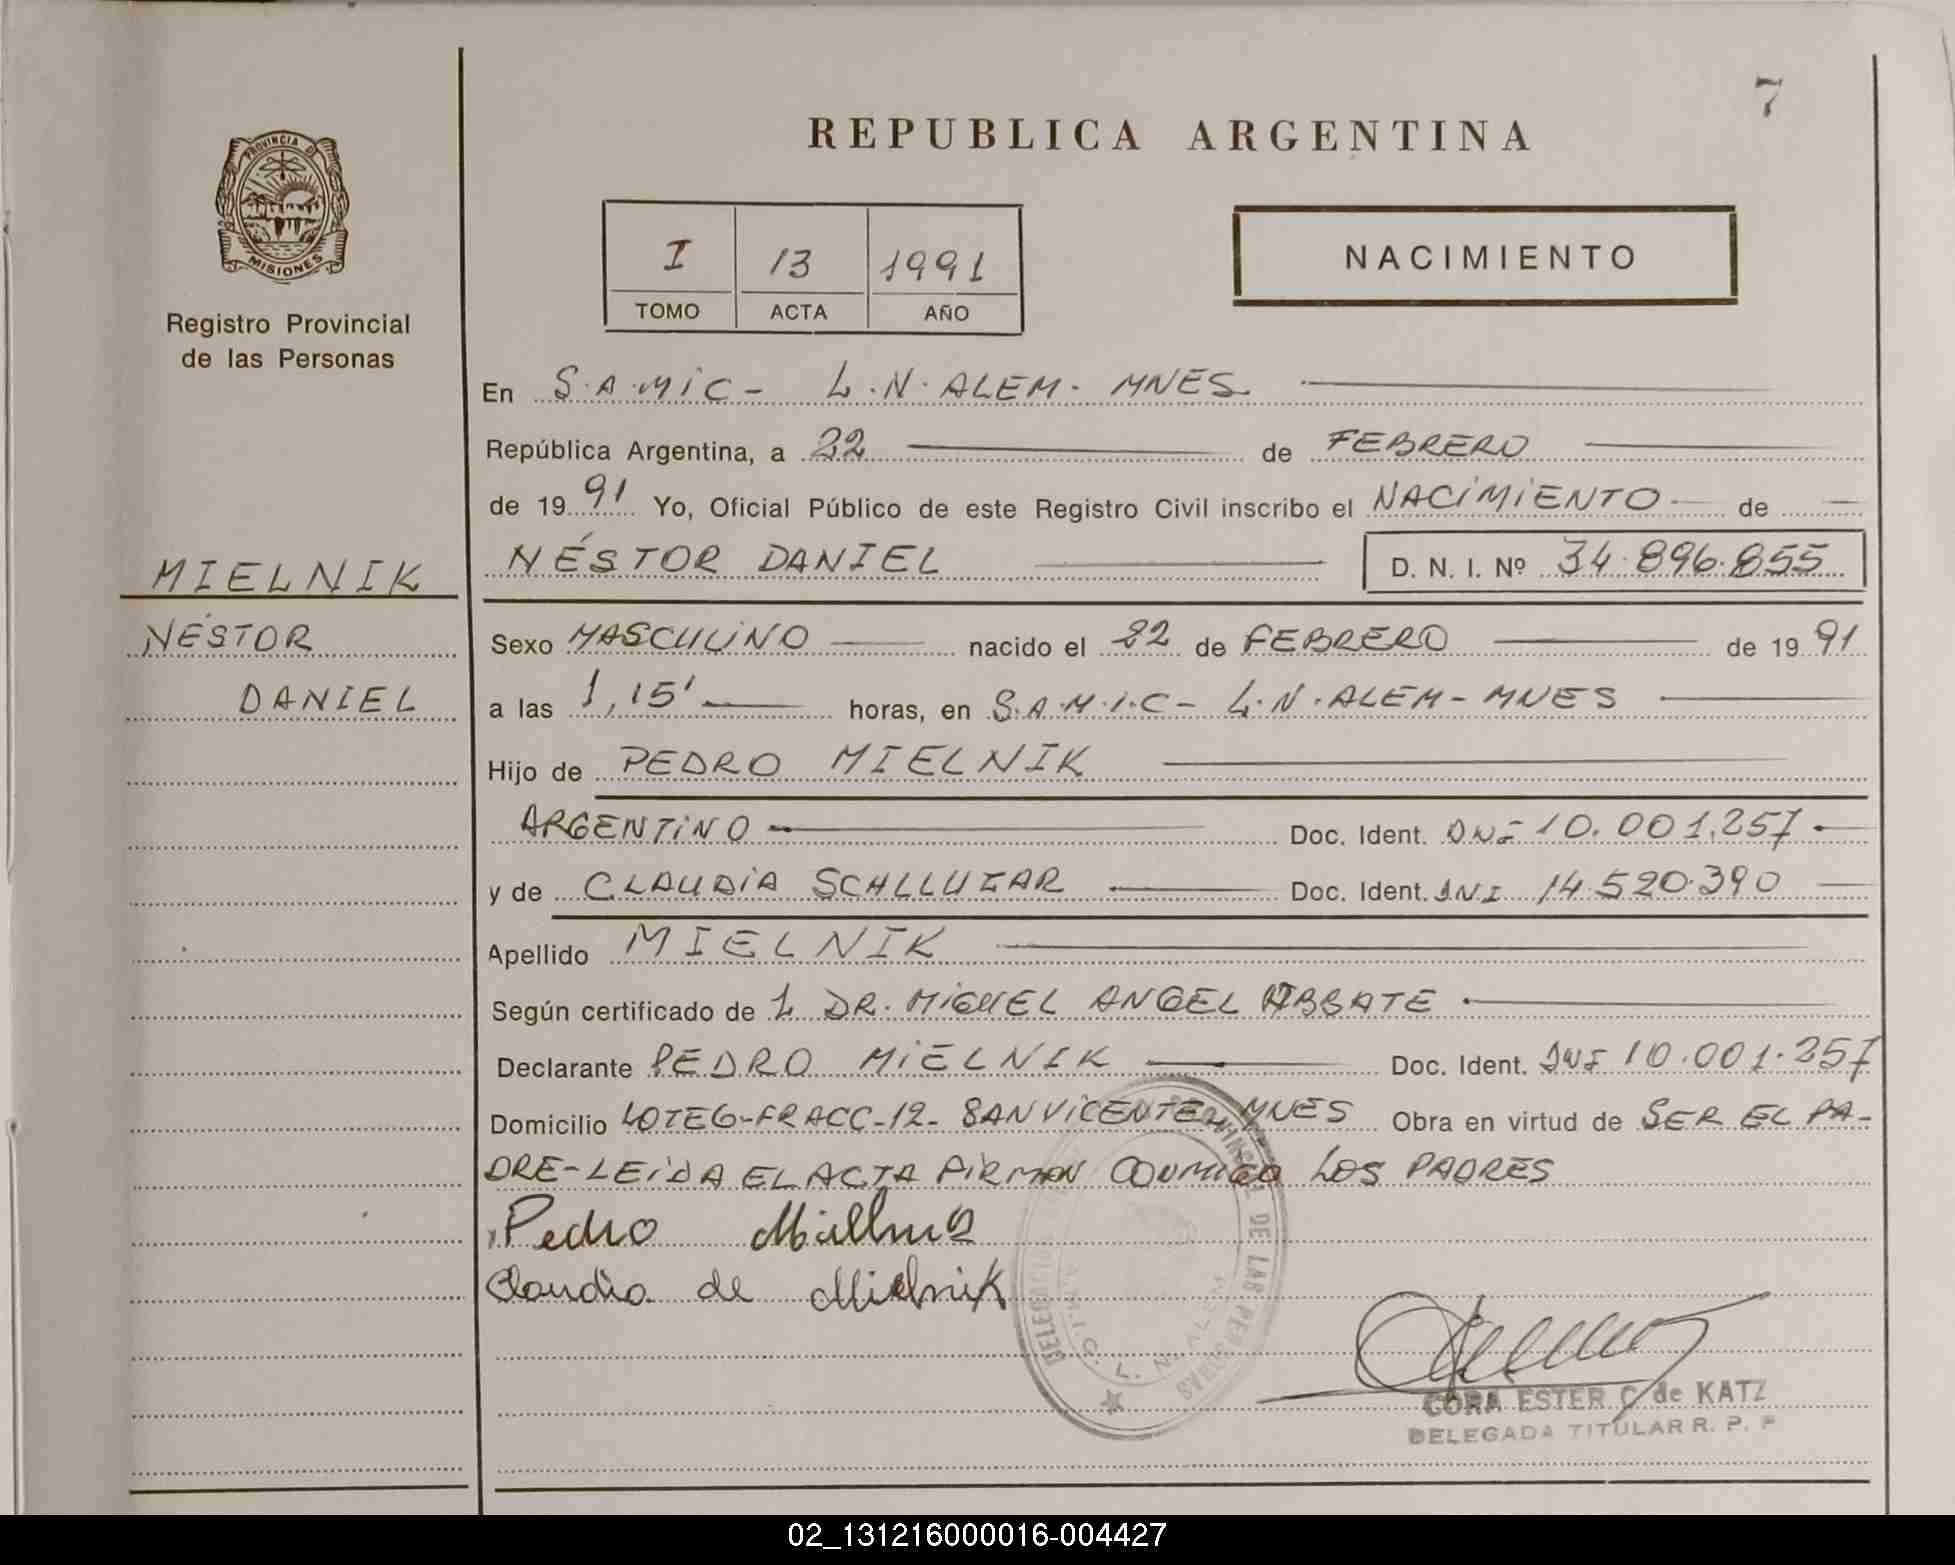 7
REPUBLICA ARGENTINA
PROVINCIA D
MISIONES
Registro Provincial
de las Personas
I 13 1991
TOMO ACTA AÑO
NACIMIENTO
En S.A.MIC- L.N.ALEM. MNES.
República Argentina, a 22 de FEBRERO
de 1991 Yo, Oficial Público de este Registro Civil inscribo el NACIMIENTO de
NÉSTOR DANIEL D. N. I. Nº 34.896.855
MIELNIK
NÉSTOR
DANIEL
Sexo MASCULINO nacido el 22 de FEBRERO de 1991
a las 1,15' horas, en S.A.M.I.C- L.N.ALEM-MNES
Hijo de PEDRO MIELNIK
ARGENTINO Doc. Ident. DNI 10.001.257
y de CLAUDIA Doc. Ident. DNI 14.520.390
Apellido MIELNIK
Según certificado de L DR. MIGUEL ANGEL ABBATE
Declarante PEDRO MIELNIK Doc. Ident. DNI 10.001.257
Domicilio LOTE6-FRACC-12- SAN VICENTE, MNES Obra en virtud de SER EL PA-
DRE-LEIDA EL ACTA FIRMAN CONMIGO LOS PADRES
Pedro
Claudia de Mielnik
DE LAS PERSONAS
L. N. ALEM
CORA ESTER C de KATZ
DELEGADA TITULAR R. P. P
02_131216000016-004427